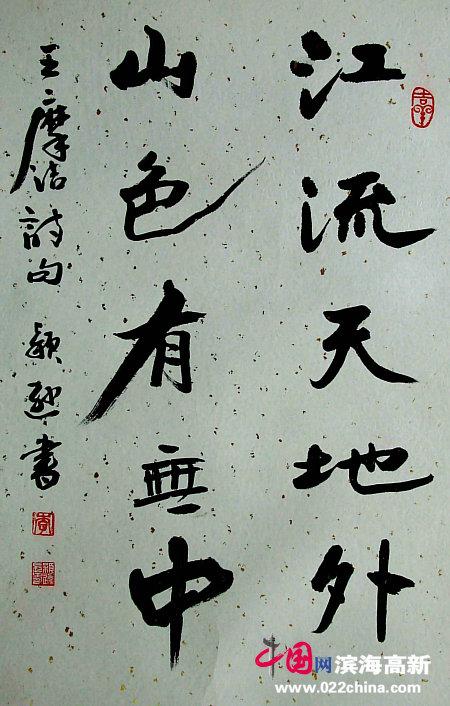 江流天地外
山色有無中
王摩诘詩句 颖 書
中国网 滨海高新
www.022china.com